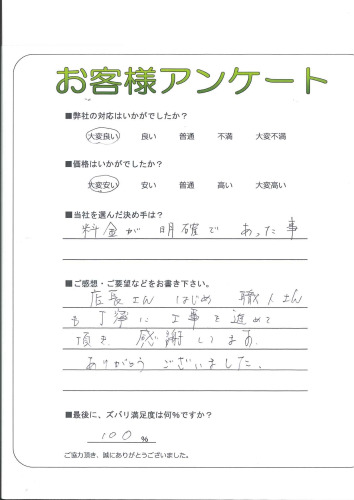 お客様アンケート
■弊社の対応はいかがでしたか？
大変良い 良い 普通 不満 大変不満
■価格はいかがでしたか？
大変安い 安い 普通 高い 大変高い
■当社を選んだ決め手は？
料金が明確であった事
■ご感想・ご要望などをお書き下さい。
店長さんはじめ職人さん
も丁寧に工事を進めて
頂き感謝してます。
ありがとうございました。
■最後に、ズバリ満足度は何％ですか？
100 %
ご協力頂き、誠にありがとうございました。